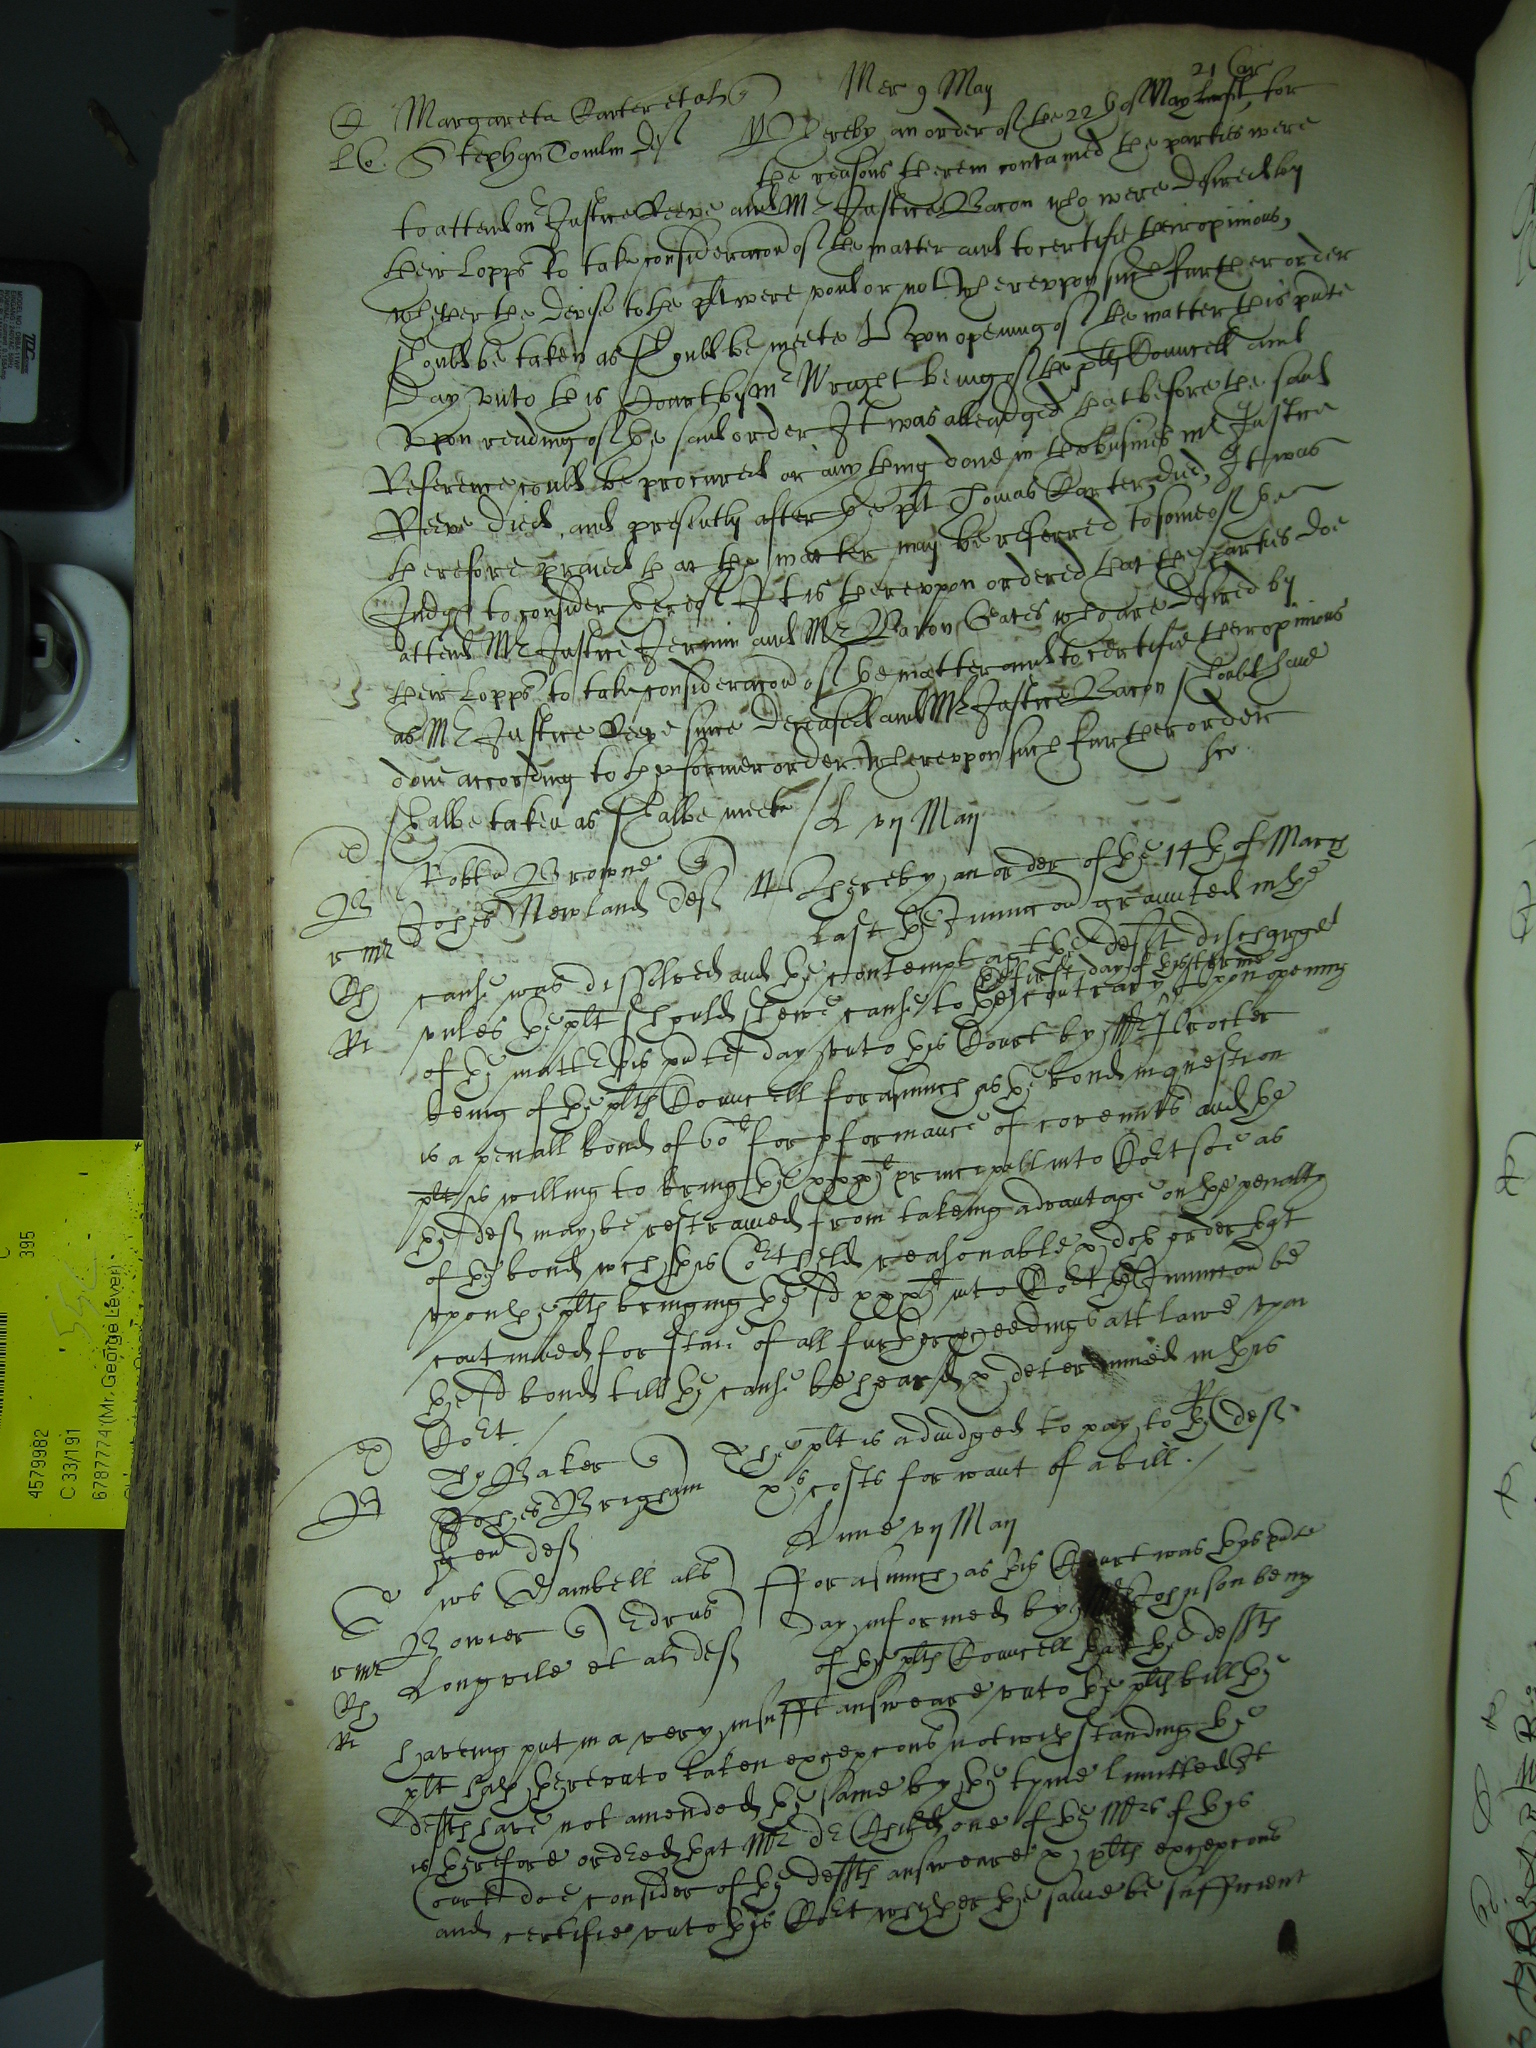 Mer 9 May
Margareta Carter et al q
Stephen Tomlin def Whereby an order of the 22th of May 21 Car for
the reasons therein contained the parties were
to attend mr Justice Reeve and Mr Justice Bacon who were desired by
their Lopps to take consideracon of the matter and to certifie their opinions,
whether the devise to the plt were void or not Whereupon such further order
should be taken as should be meete Upon opening of the matter this pnte
day unto this Court by mr Wright being of the plts Councell and
upon reading of the said order It was alleadged that before the said
Reference could be procured or any thing done in the busines mr Justice
Reeve died, and presently after the plt Thomas Carter died, It was
therefore praied that the matter may be referred to some of the
Judges to consider thereof It is thereupon ordered that the parties doe
attend Mr Justice Jermin and Mr Baron Gates who are desired by
their Lopps to take consideracon of the matter and to certifie their opinions
as Mr Justice Reeve since deceased and Mr Justice Bacon should have
done according to the former order Whereupon such further order
shalbe taken as shalbe meete
vij May
Robte Browne q
Johes Newland def Whereby an order of the 14th of March
last the Iniunccon graunted in the
cause was dissolved and the contempt agt the deft dischardged
unles the plt should shewe cause to the contrary the first day of this terme Upon opening
of the matter this pnte day unto this Court by Mr Procter
being of the plts Councell forasmuch as the bond in question
is a penall bond of 60l for pformance of covennts and the
plt is willing to bring the xxxl principall into Cort soe as
the def may be restrained from takeing advantage on the penalty
of the bond wch this Cort held reasonable & doth order that
upon the plts bringing the sd xxxl into Cort the Iniunccon be
continued for staie of all further proceedings att lawe upon
the sd bond till the cause be heard & determined in this
Cort.
Tho Baker q The plt is adiudged to pay to the def
Johes Brigham xxs costs for want of a bill.
gen def
Lune vij May
Gambell als Forasmuch as this Court was this pnte
Bowier q Edrus day informed by Mr Johnson being
Longvile et al def of the plts Councell that the defts
haveing put in a very insufft answeare unto the plts bill the
plt hath thereunto taken excepcons notwithstanding the
defts have not amended the same by the tyme limitted It
is therefore ordred that Mr one of the Mrs of this
Court doe consider of the defts answeare & plts excepcons
and certifie unto this Cort whether the same be sufficient
4579982
C 33/191
6787774 (Mr. George Lever)
395